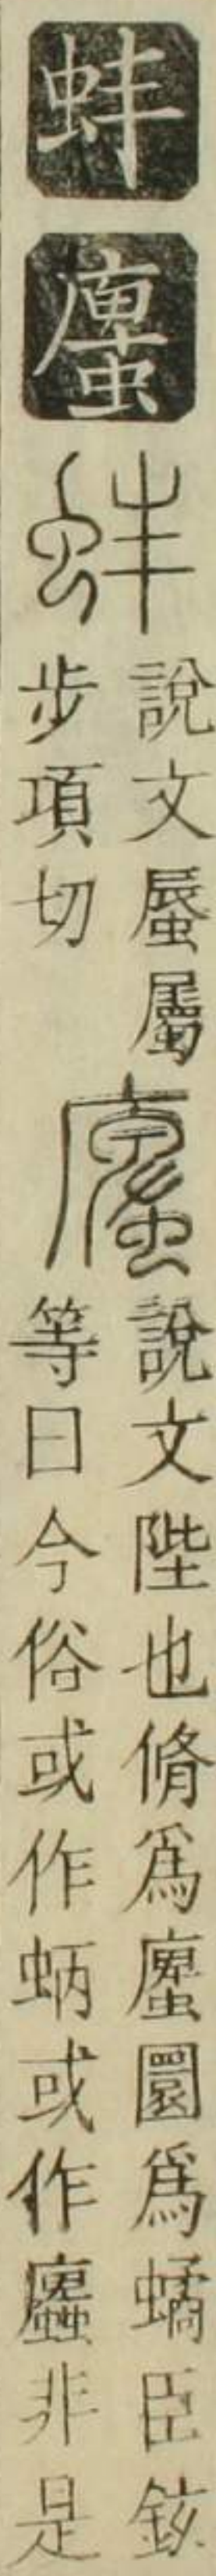 蚌
蚌
說文蜃屬
步項切
說文陛也脩爲圜爲臣鉉
等曰今俗或作蛃或作非是